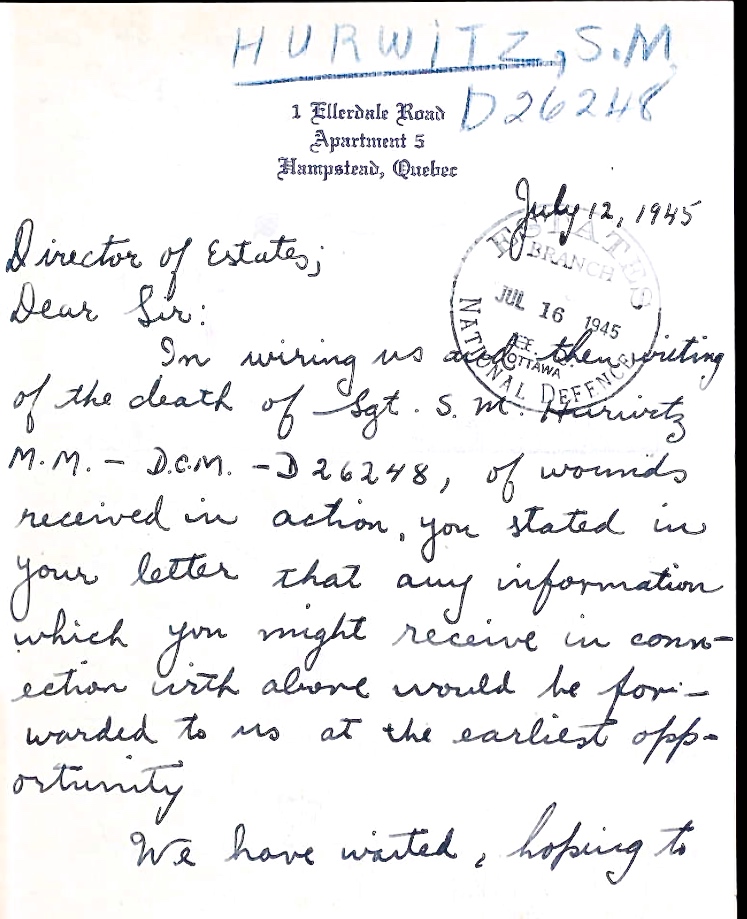 HURWITZ, S.M.
D26248
1 Ellerdale Road
Apartment 5
Hampstead, Quebec
July 12, 1945
ESTATES
BRANCH
JUL 16 1945
OTTAWA
NATIONAL DEFENCE
Director of Estates;
Dear Sir:
In wiring us and then writing
of the death of Sgt. S. M. Hurwitz
M.M. - D.C.M. - D26248, of wounds
received in action, you stated in
your letter that any information
which you might receive in conn-
ection with above would be for-
warded to us at the earliest opp-
ortunity
We have waited, hoping to